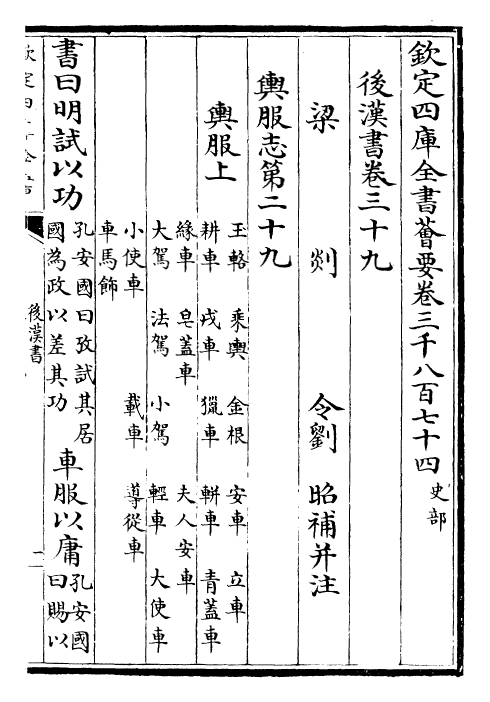 欽定四庫全書薈要卷三千八百七十四 史部
後漢書卷三十九
梁 剡 令劉昭補并注
輿服志第二十九
輿服上
玉輅 乘輿 金根 安車 立車
耕車 戎車 獵車 輧車 青蓋車
緣車 皂蓋車 夫人安車
大駕 法駕 小駕 輕車 大使車
小使車 載車 導從車
車馬飾
書曰明試以功 孔安國曰攷試其居國為政以差其功 車服以庸 孔安國曰賜以
後漢書